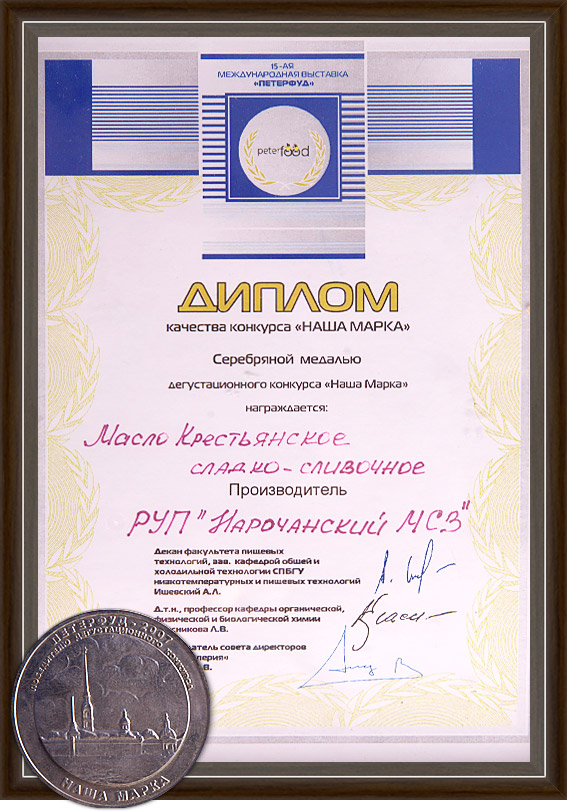 15-АЯ
МЕЖДУНАРОДНАЯ ВЫСТАВКА
«ПЕТЕРФУД»
peterfood
ДИПЛОМ
качества конкурса «НАША МАРКА»
Серебряной медалью
дегустационного конкурса «Наша Марка»
награждается:
Масло Крестьянское
сладко-сливочное
Производитель
РУП "Нарочанский МСЗ"
Декан факультета пищевых
технологий, зав. кафедрой общей и
холодильной технологии СПБГУ
низкотемпературных и пищевых технологий
Ишевский А.Л.
Д.т.н., профессор кафедры органической,
физической и биологической химии
Л.В.
совета директоров
В.
ПЕТЕРФУД
ПОБЕДИТЕЛЮ ДЕГУСТАЦИОННОГО КОНКУРСА
НАША МАРКА